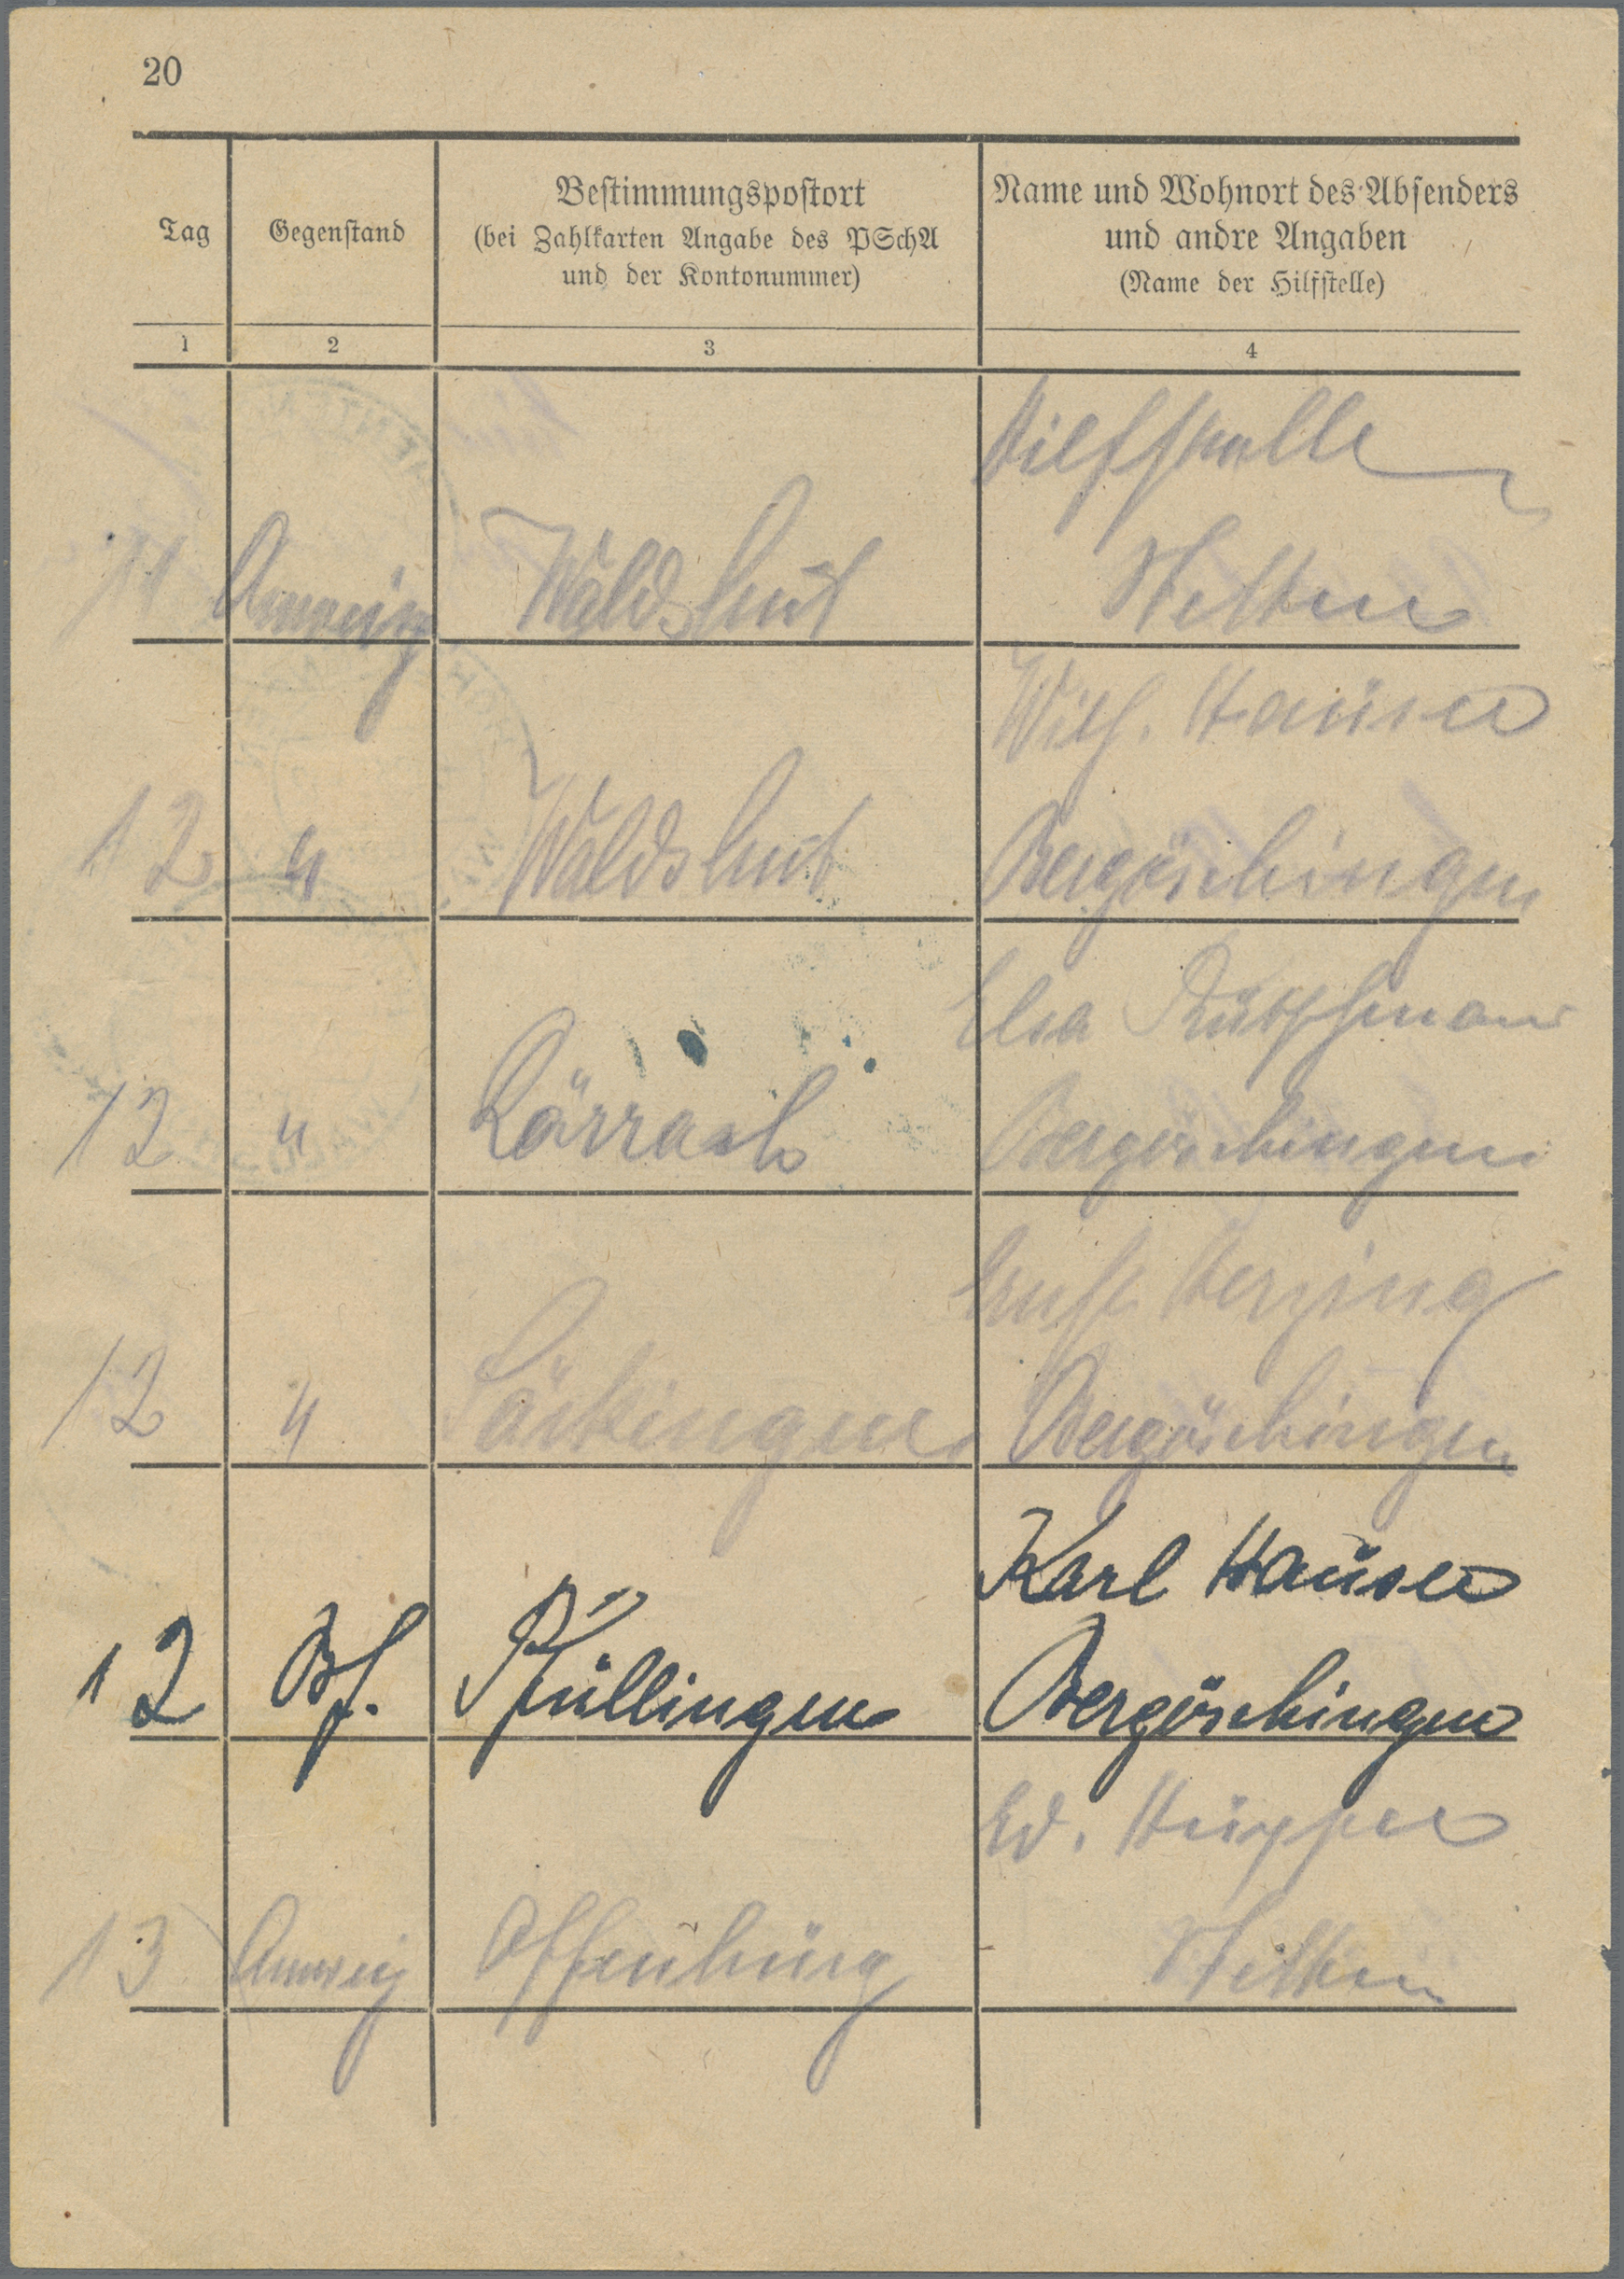 20
Tag
Gegenstand
Bestimmungspostort
(bei Zahlkarten Angabe des PSchA
und der Kontonummer)
Name und Wohnort des Absenders
und andre Angaben
(Name der Hilfstelle)
1 2 3 4
Hilfstelle
11 Anweig Waldshut Stetten
Wilh. Hauser
12 " Waldshut Bergöschingen
Elsa
12 " Lörrach Bergöschingen
Ernst Herzing
12 " Säckingen Bergöschingen
Karl Hauser
12 Bf. Pfüllingen Bergöschingen
Ed.
13 Anweig Offenburg Stetten